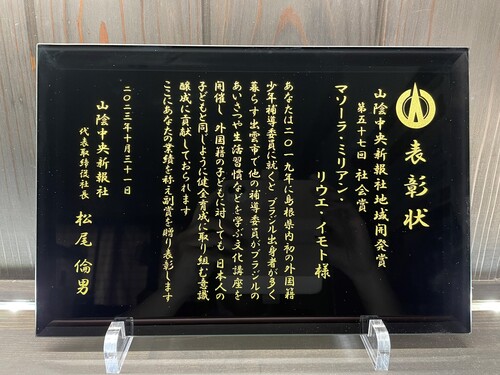 表彰状
山陰中央新報社地域開発賞
第五十七回 社会賞
マゾーラ・ミリアン・
リウエ・イモト様
あなたは二〇一九年に島根県内初の外国籍
少年補導委員に就くと ブラジル出身者が多く
暮らす出雲市で他の補導委員がブラジルの
あいさつや生活習慣などを学ぶ文化講座を
開催し 外国籍の子どもに対しても 日本人の
子どもと同じように健全育成に取り組む意識
醸成に貢献しておられます
ここにあなたの業績を称え副賞を贈り表彰します
二〇二三年十月三十一日
山陰中央新報社
代表取締役社長 松尾倫男